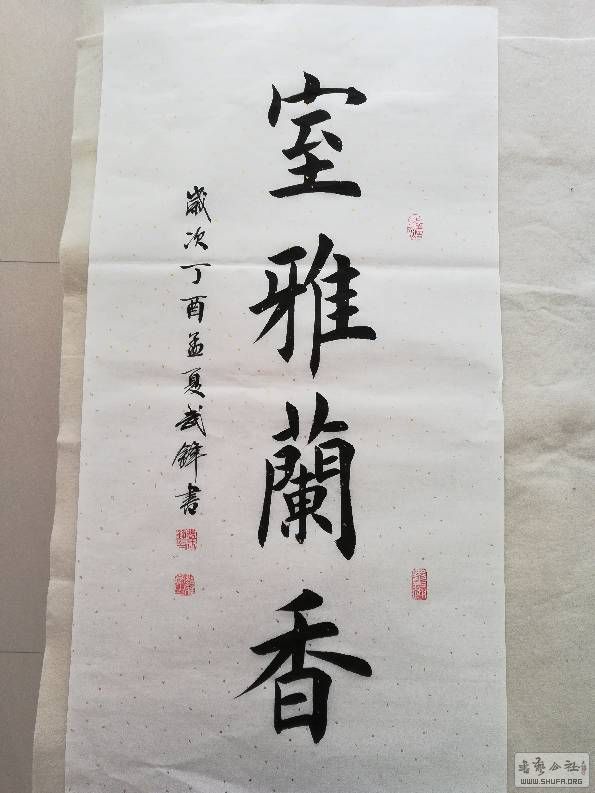 室雅蘭香
歲次丁酉孟夏武鋒書
书艺公社
WWW.SHUFA.ORG